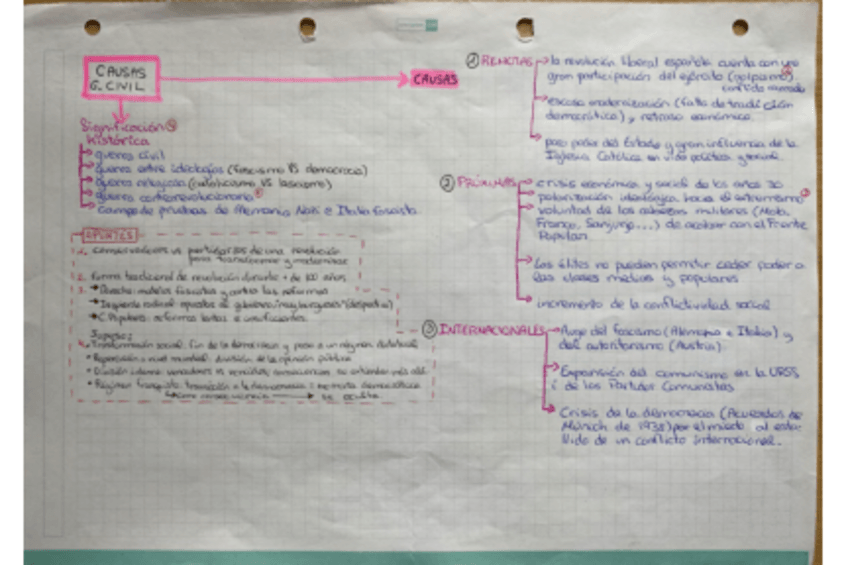 CAUSAS
G. CIVIL
CAUSAS
Significación 4
histórica
guerra civil
guerra entre ideologías (fascismo VS democracia)
guerra religiosa (catolicismo VS laicismo)
guerra contrarrevolucionaria 1
campo de pruebas de Alemania Nazi e Italia fascista
APUNTES
1. conservadores vs partidarios de una revolución
para transformar y modernizar
2. forma tradicional de revolución durante + de 100 años
3. → Derecha: modelos fascistas y contra las reformas
→ Izquierda radical: opuestos al gobierno "muy burgueses"
→ C. Populares: reformas lentas e insuficientes.
Supuso:
4. • Transformación social: fin de la democracia y paso a un régimen dictatorial
• Repercusión a nivel mundial: división de la opinión pública
• División interna: vencedores vs vencidos, consecuencias no entienden más allá
• Régimen franquista, transición a la democracia: memoria democrática
como consecuencia → se oculta
1 REMOTAS
la revolución liberal española cuenta con una
gran participación del ejército (golpismo) 2
escasa modernización (falta de tradición
democrática), retraso económico.
poco poder del Estado y gran influencia de la
Iglesia Católica en vida política y social.
2 PRÓXIMAS
crisis económica y social de los años 30
polarización ideológica hacia el extremismo 3
voluntad de las cabezas militares (Mola,
Franco, Sanjurjo...) de acabar con el Frente
Popular.
Las élites no pueden permitir ceder poder a
las clases medias y populares
incremento de la conflictividad social
3 INTERNACIONALES
Auge del fascismo (Alemania e Italia) y
del autoritarismo (Austria).
Expansión del comunismo en la URSS
i de los Partidos Comunistas
Crisis de la democracia (Acuerdos de
Múnich de 1938) por el miedo al esta-
llido de un conflicto internacional.